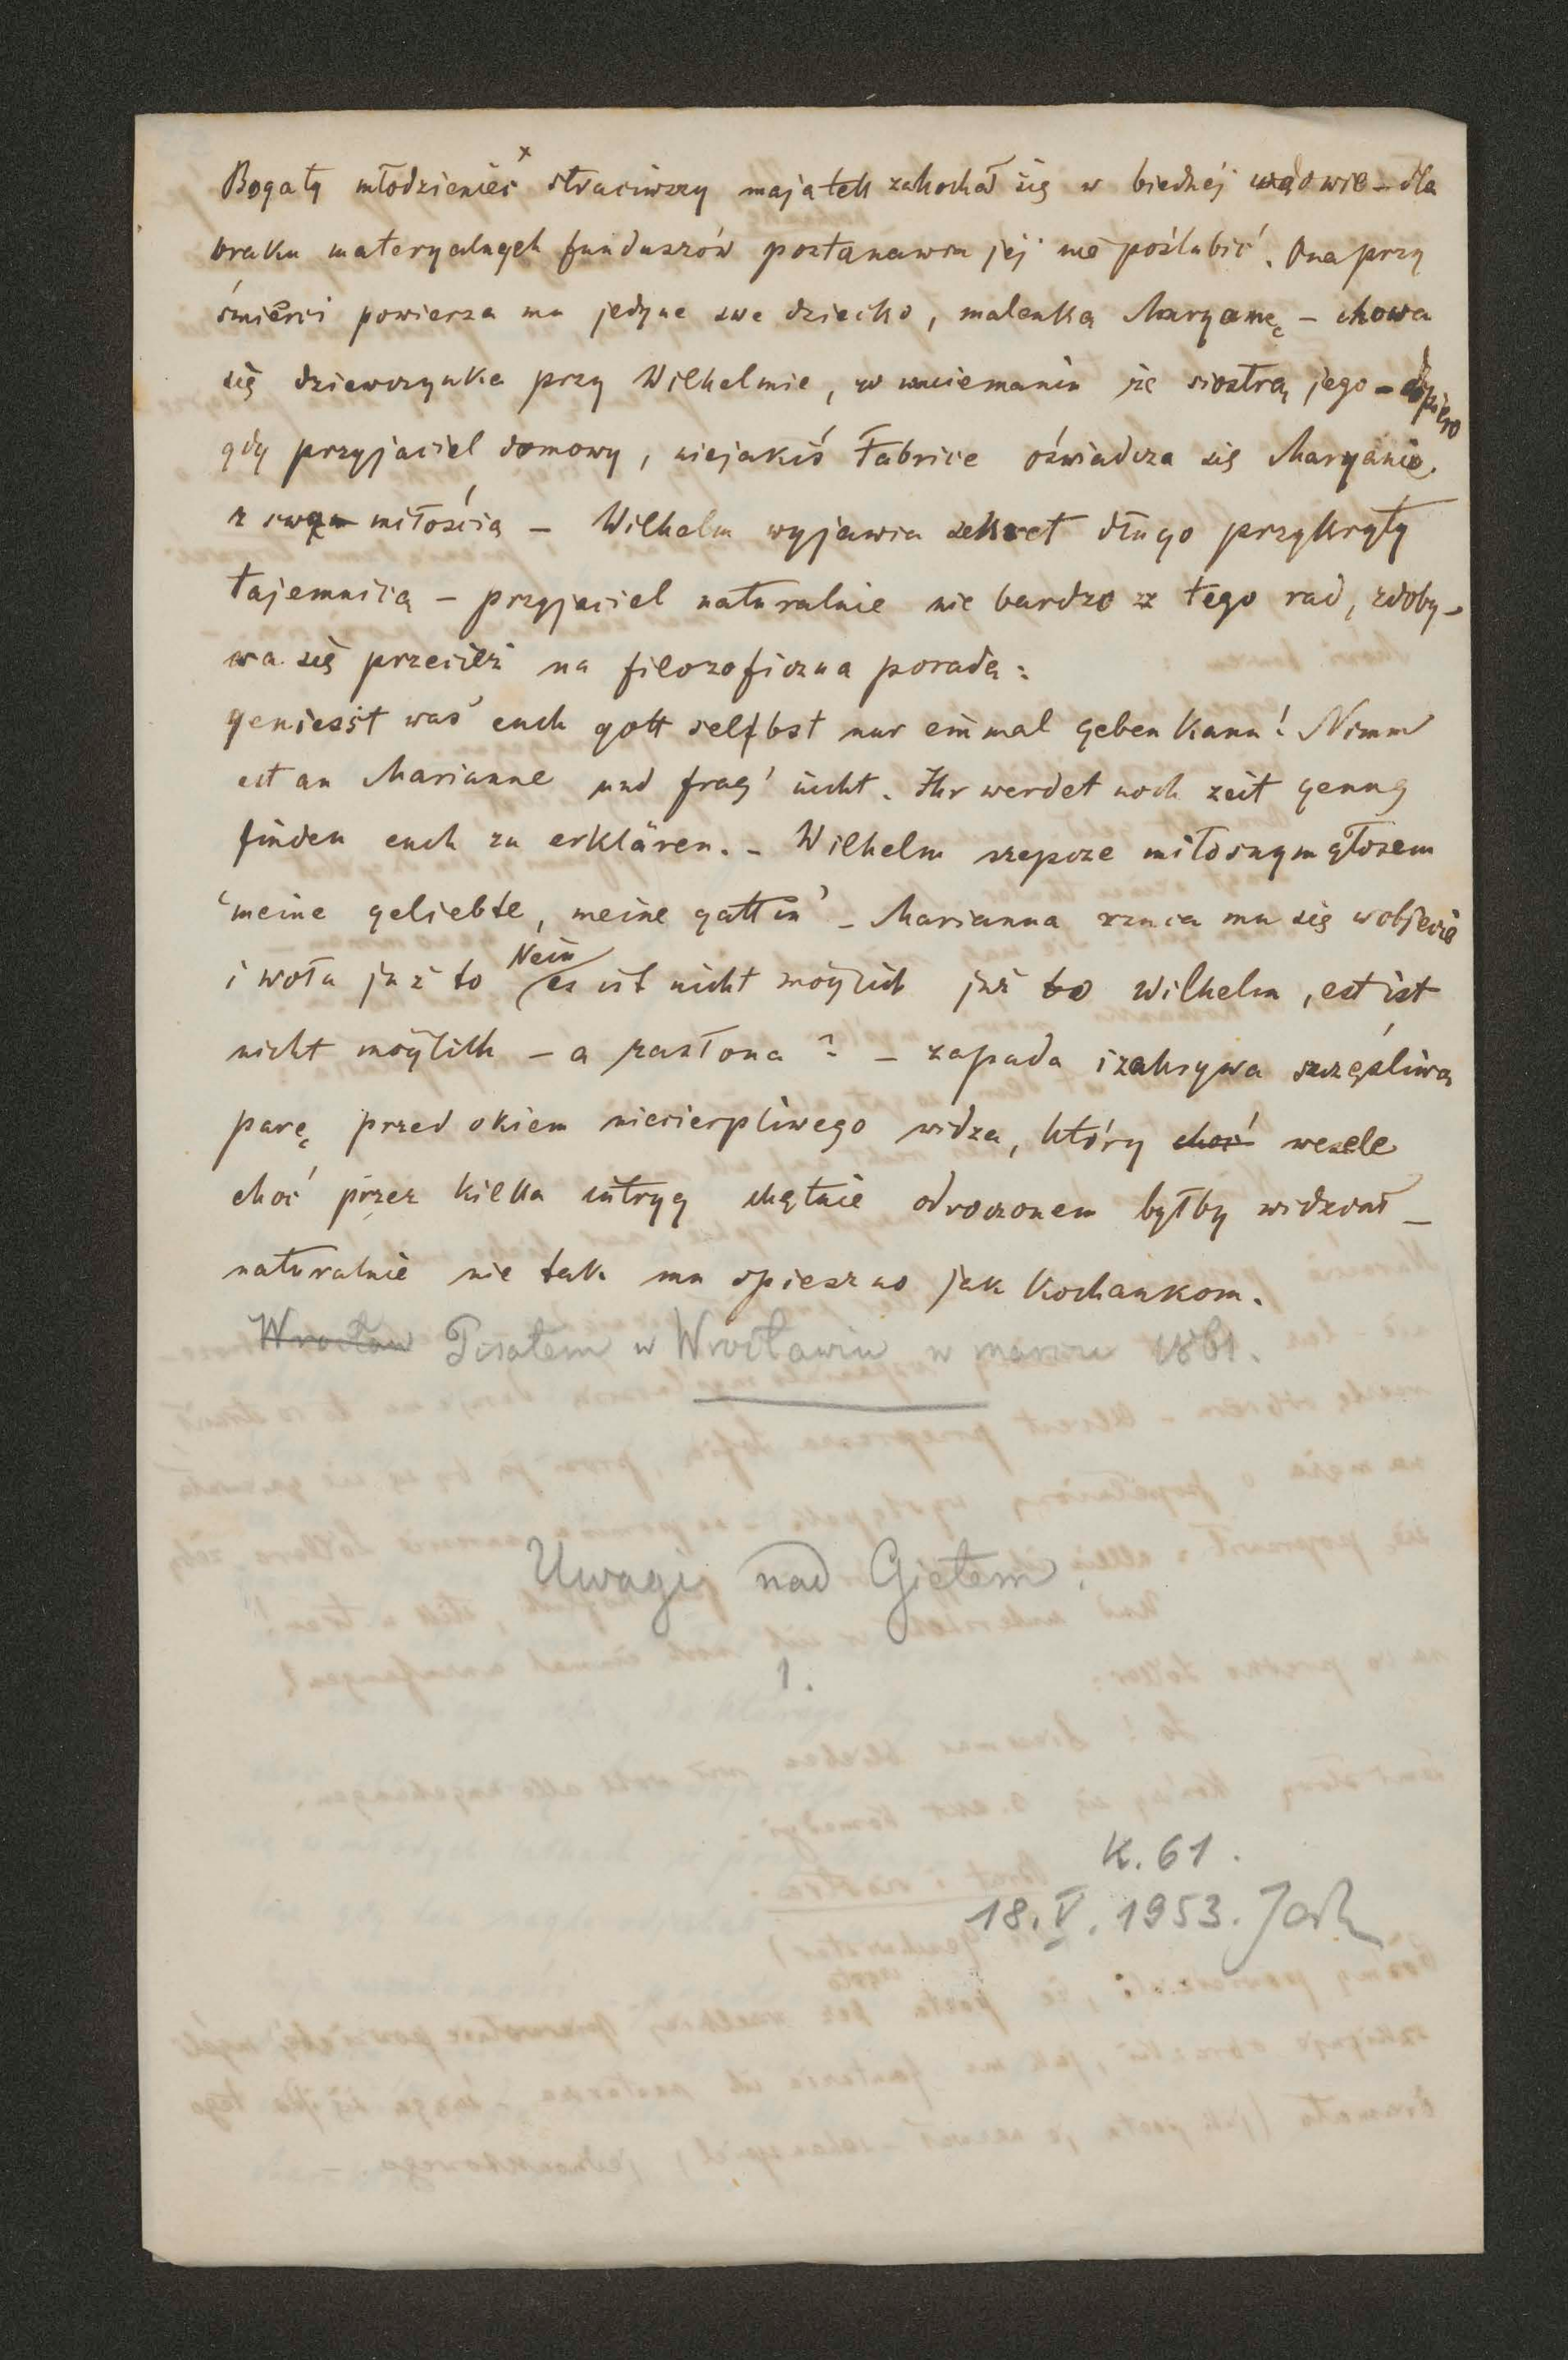 Bogaty młodzieniec x straciwszy majatek zakochał się w biednéj wdowie – dla
braku materyalnych funduszów postanawia jéj nie poślubić. Ona przy
śmierci powierza mu jedyne swe dziecko, malenką Maryannę – chowa
się dziewczynka przy Wilhelmie, w mniemaniu że siostrą jego – dopiero
gdy przyjaciel domowy, niejakiś Fabrice oświadcza się Maryannie
z swą miłością – Wilhelm wyjawia sekret długo przykryty
tajemnicą – przyjaciel naturalnie nie bardzo z tego rad, zdoby-
wa się przecież na filozoficzna poradę:
geniesst was euch gott selbst nur einmal geben kann! Nimm
est an Marianne und frag' nicht. Ihr werdet noch zeit genug
finden euch zu erklären. – Wilhelm szepcze miłosnym głosem
"meine geliebte, meine gattin" – Marianna rzuca mu się w objęcie
i woła już to Nein es ist nicht möglich już to Wilhelm, est ist
nicht möglich – a zasłona? – zapada i zakrywa szczęśliwą
parę przed okiem niecierpliwego widza, który choć wesele
choć przez kilka intryg chętnie odroczonem byłby widział –
naturalnie nie tak mu spieszno jak kochankom.
Wrocław Pisałem w Wrocławiu w marcu 1861.
Uwagi nad Gietem.
1.
K. 61.
18.V.1953. Jach